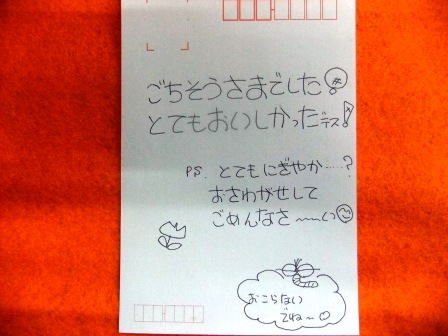 ごちそうさまでした!
とてもおいしかったデス!
P.S. とてもにぎやか……?
おさわがせして
ごめんなさ〜〜い
おこらない
でね〜